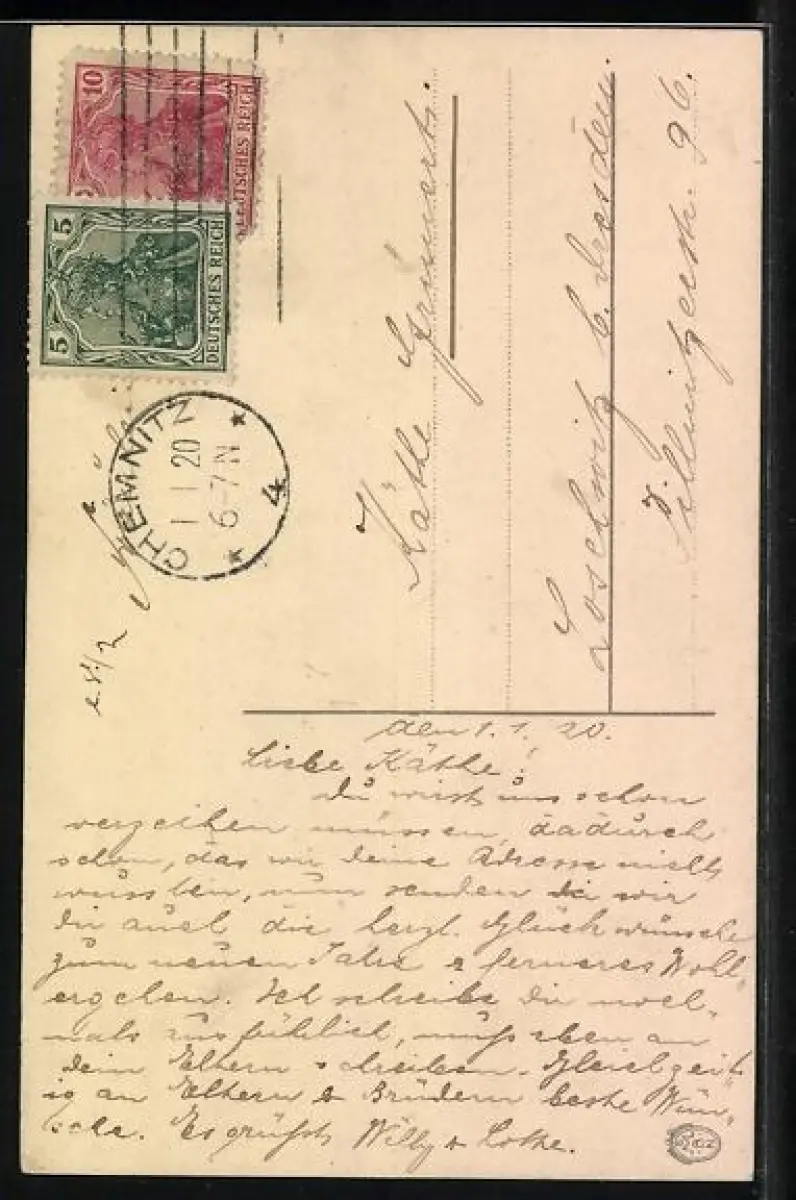 10
DEUTSCHES REICH
5
5
DEUTSCHES REICH
CHEMNITZ
1 1 20
6-7 N
* 4 *
Käthe
Loschwitz b. Dresden.
Pillnitzerstr. 96.
den 1.1.20.
Liebe Käthe!
Du wirst uns schon
verzeihen müssen, dadurch
schon, das wir deine Adresse nicht
wussten, nun senden wir
Dir auch die herzl. Glückwünsche
zum neuen Jahre & ferneres Wohl„
ergehen. Ich schreibe Dir noch„
mals ausführlich, muß eben an
dein Eltern schreiben. Gleichzeit„
ig an Eltern & Brüdern beste Wün„
sche. Es grüßt Willy & Lotte.